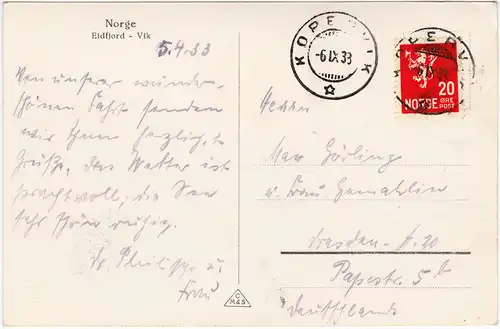 Norge
Eidfjord - Vik
5.9.33
Von unserer wunder-
schönen Fahrt senden
wir Ihnen herzlichste
Grüße, das Wetter ist
prachtvoll, die See
sehr schön ruhig.
Dr. Philipp u.
Frau
C
M&S
KOPERVIK
-6 IX 33
KOPERVIK
20
NORGE ØRE
POST
Herrn
Max Görling
u. Frau Gemahlin
Dresden - A. 20
Papestr. 5 b
Deutschland